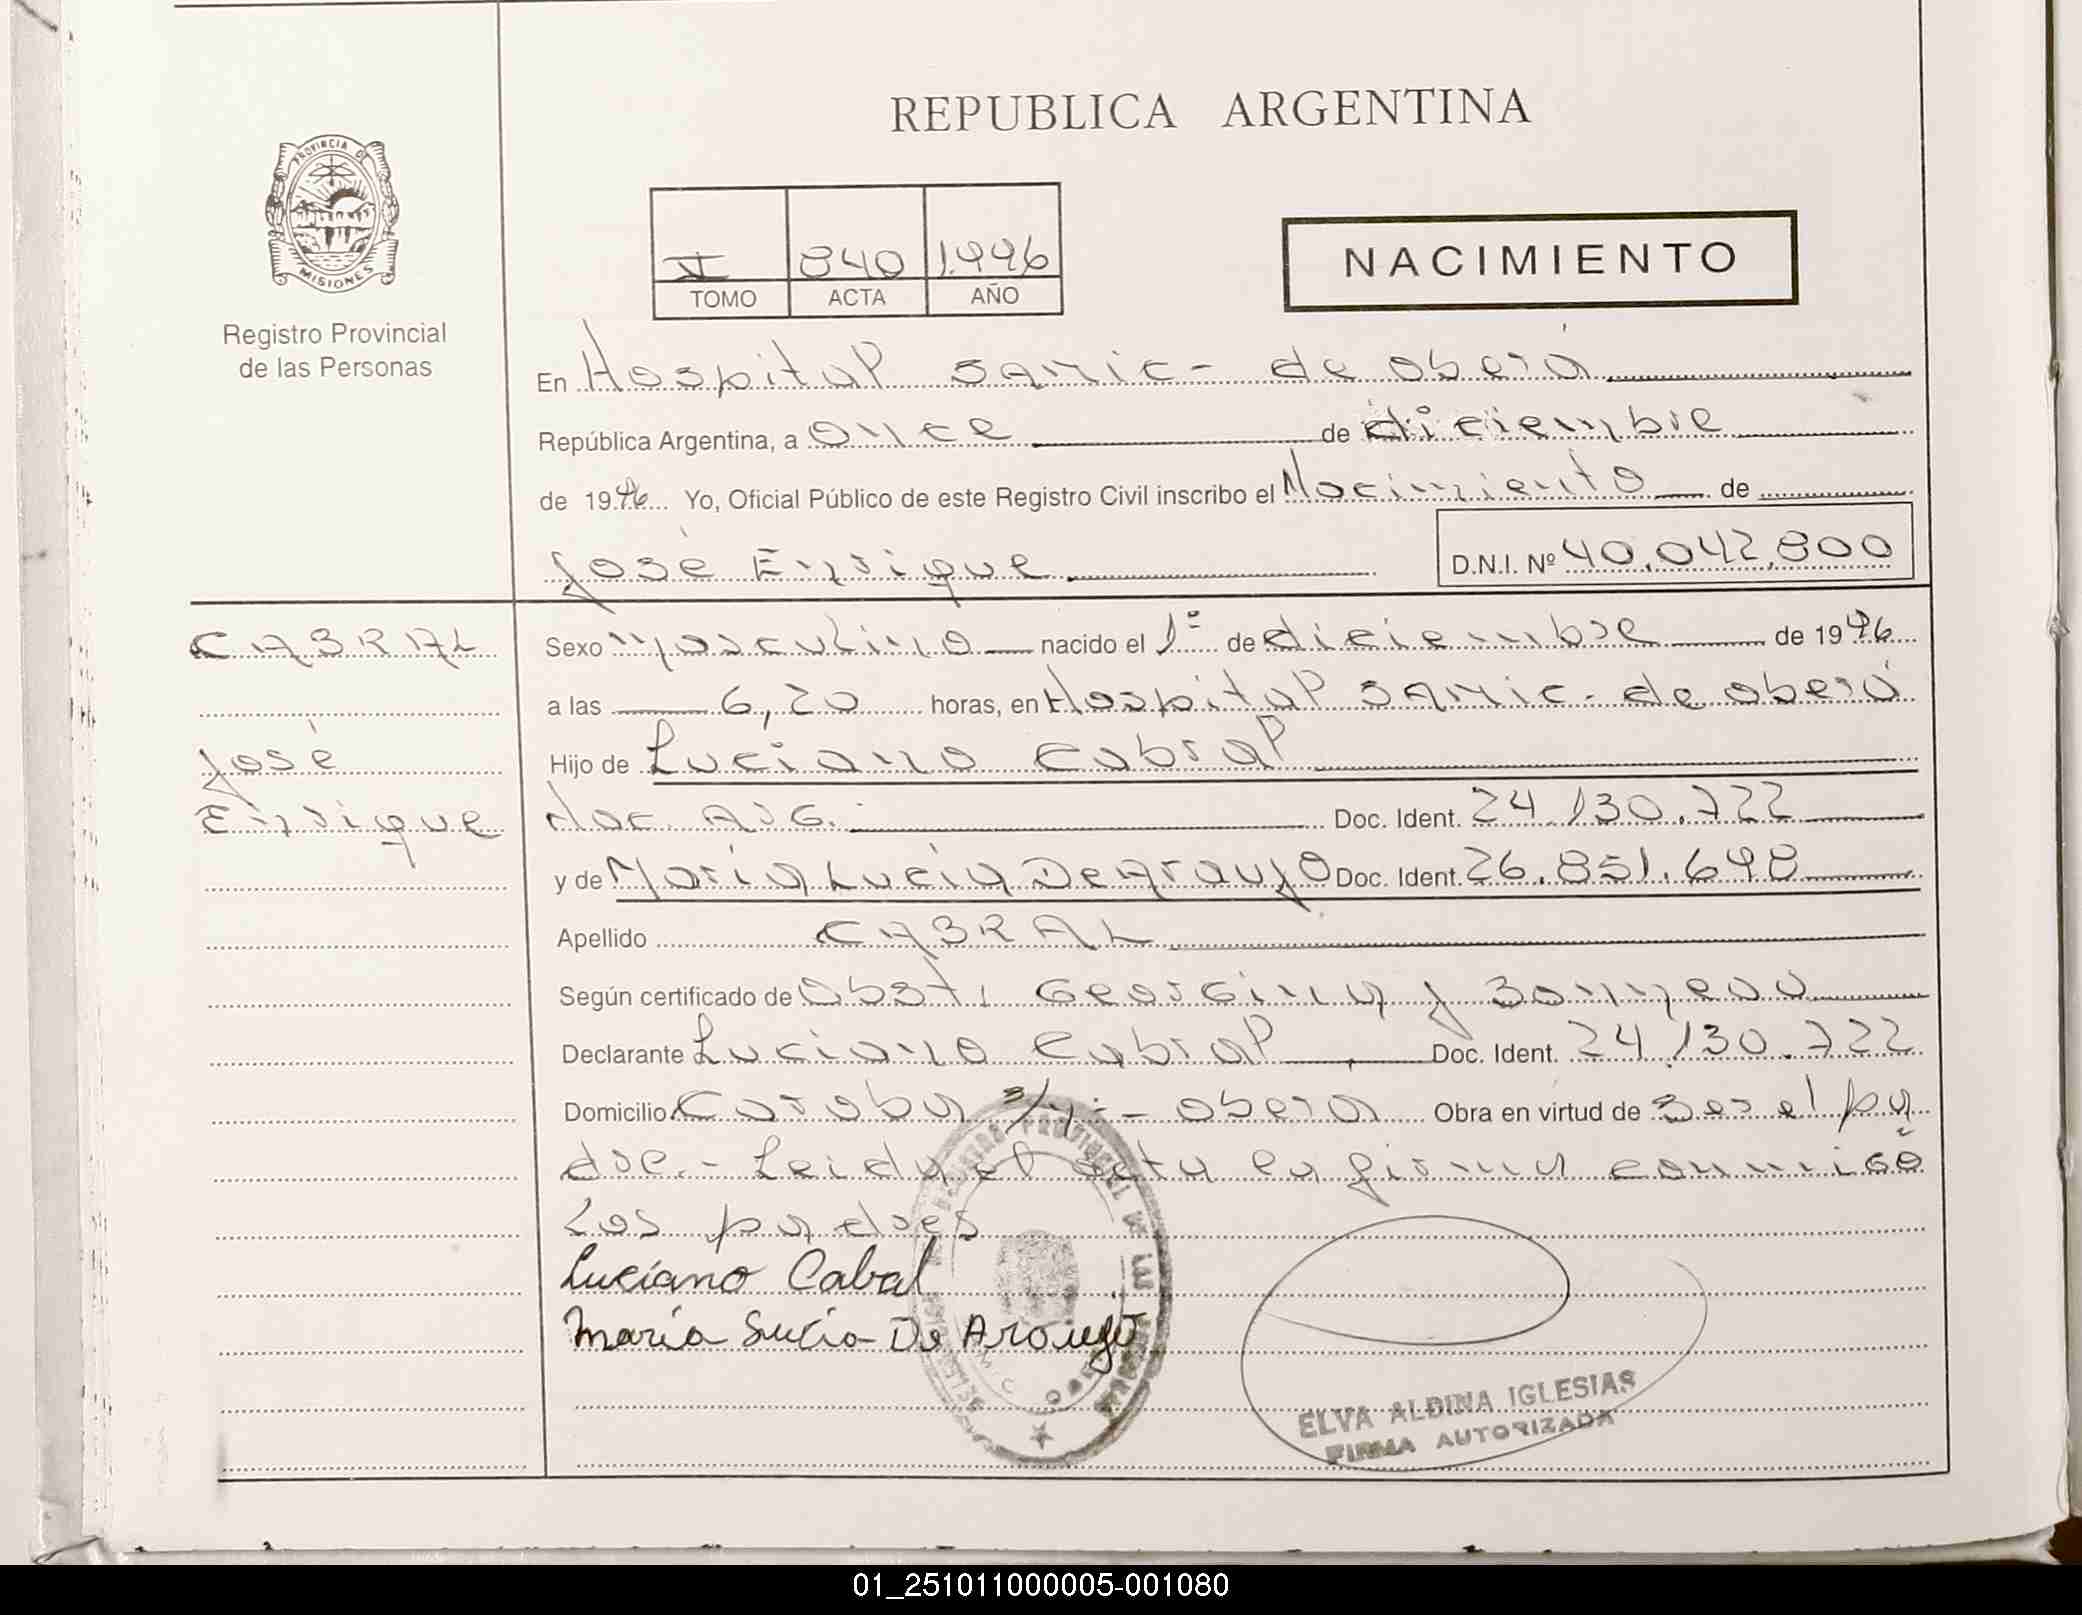 REPUBLICA ARGENTINA
PROVINCIA DE
MISIONES
Registro Provincial
de las Personas
II 840 1.996
TOMO ACTA AÑO
NACIMIENTO
En Hospital SAMIC - de oberá
República Argentina, a once de diciembre
de 1996 Yo, Oficial Público de este Registro Civil inscribo el Nacimiento de
José Enrique D.N.I. Nº 40.042.800
CABRAL
José
Enrique
Sexo masculino nacido el 1º de diciembre de 1996
a las 6,20 horas, en Hospital SAMIC - de oberá
Hijo de Luciano Cabral
Nac. ARG. Doc. Ident. 24.130.722
y de María Lucia De Araujo Doc. Ident. 26.851.698
Apellido CABRAL
Según certificado de Obst. Georgina
Declarante Luciano Cabral Doc. Ident. 24.130.722
Domicilio oberá Obra en virtud de Ser el pa
dre.- Leida el acta la firman conmigo
Los padres
Luciano Cabral
María Lucia De Araujo
REGISTRO PROVINCIAL DE LAS PERSONAS
ELVA ALDINA IGLESIAS
FIRMA AUTORIZADA
01_251011000005-001080